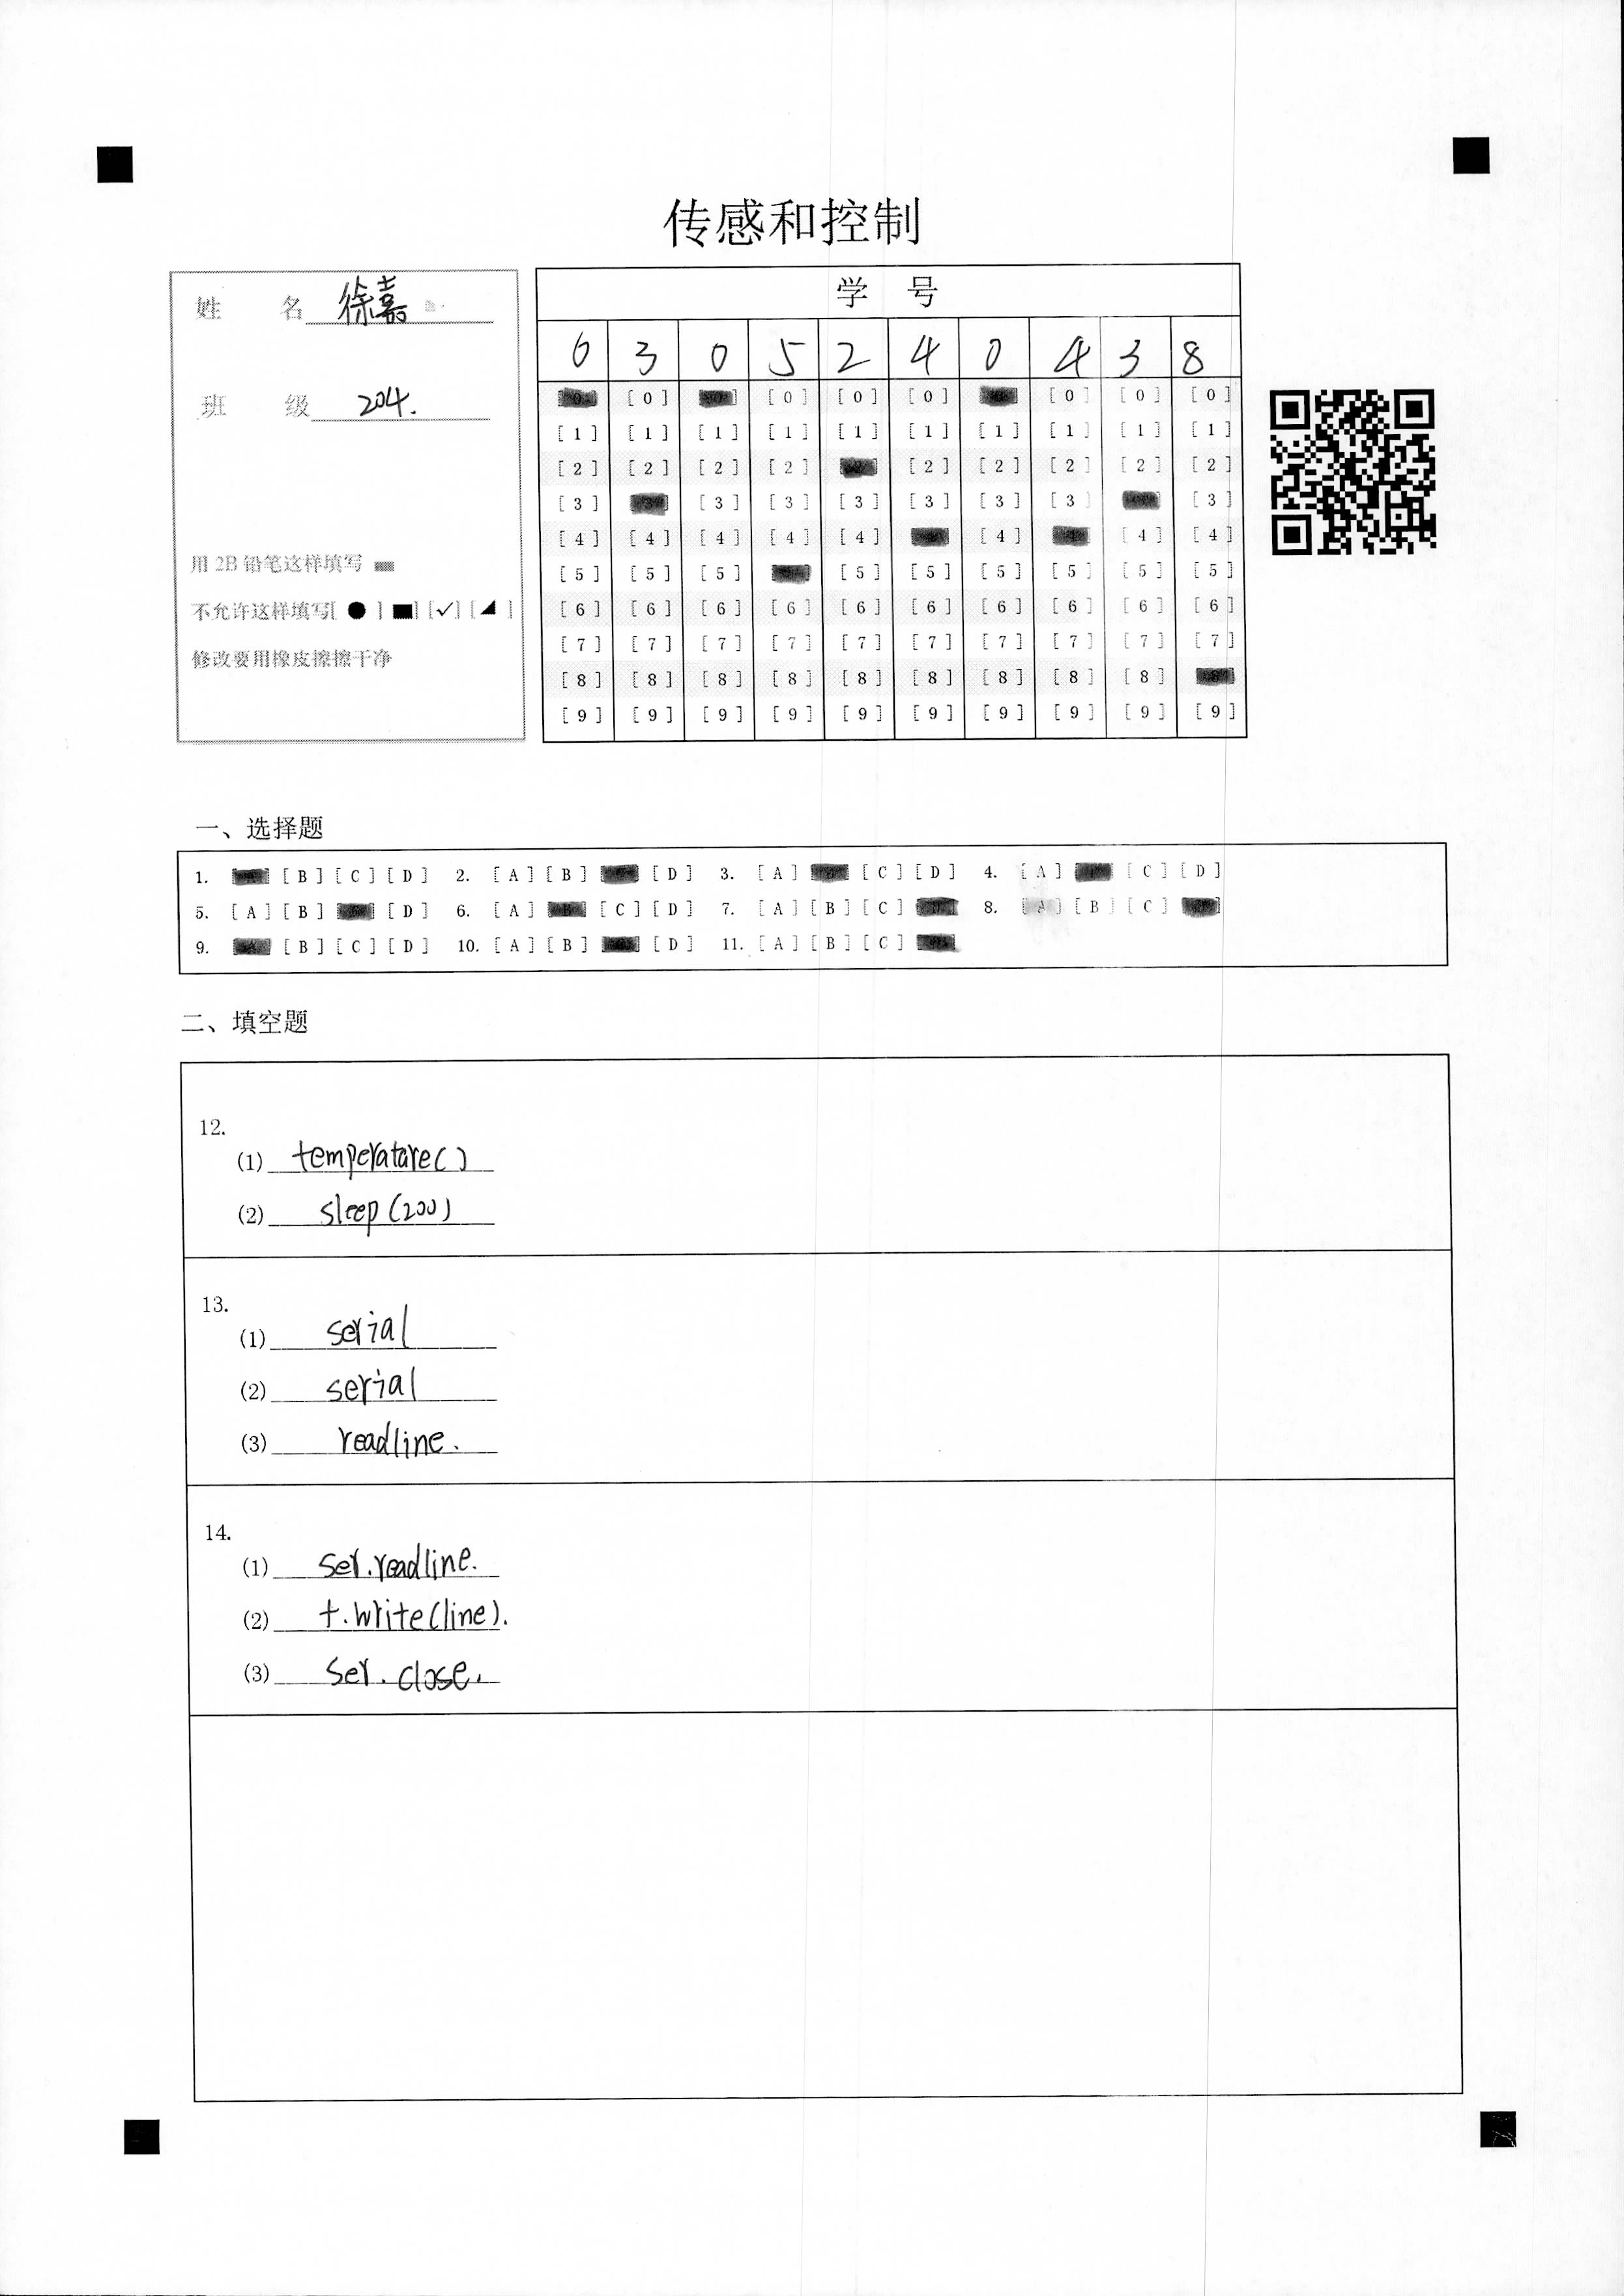 传感和控制
姓 名 徐嘉
班 级 204.
用 2B 铅笔这样填写
不允许这样填写[ ● ] [■] [✓] [◢ ]
修改要用橡皮擦擦干净
学 号
0 3 0 5 2 4 0 4 3 8
[0] [0] [0] [0] [0] [0] [0]
[1] [1] [1] [1] [1] [1] [1] [1] [1] [1]
[2] [2] [2] [2] [2] [2] [2] [2] [2]
[3] [3] [3] [3] [3] [3] [3] [3]
[4] [4] [4] [4] [4] [4] [4] [4]
[5] [5] [5] [5] [5] [5] [5] [5] [5]
[6] [6] [6] [6] [6] [6] [6] [6] [6] [6]
[7] [7] [7] [7] [7] [7] [7] [7] [7] [7]
[8] [8] [8] [8] [8] [8] [8] [8] [8]
[9] [9] [9] [9] [9] [9] [9] [9] [9] [9]
一、选择题
1. [B] [C] [D] 2. [A] [B] [D] 3. [A] [C] [D] 4. [A] [C] [D]
5. [A] [B] [D] 6. [A] [C] [D] 7. [A] [B] [C] 8. [A] [B] [C]
9. [B] [C] [D] 10. [A] [B] [D] 11. [A] [B] [C]
二、填空题
12.
(1) temperature()
(2) sleep(200)
13.
(1) serial
(2) serial
(3) readline.
14.
(1) ser.readline.
(2) t.write(line).
(3) ser.close.